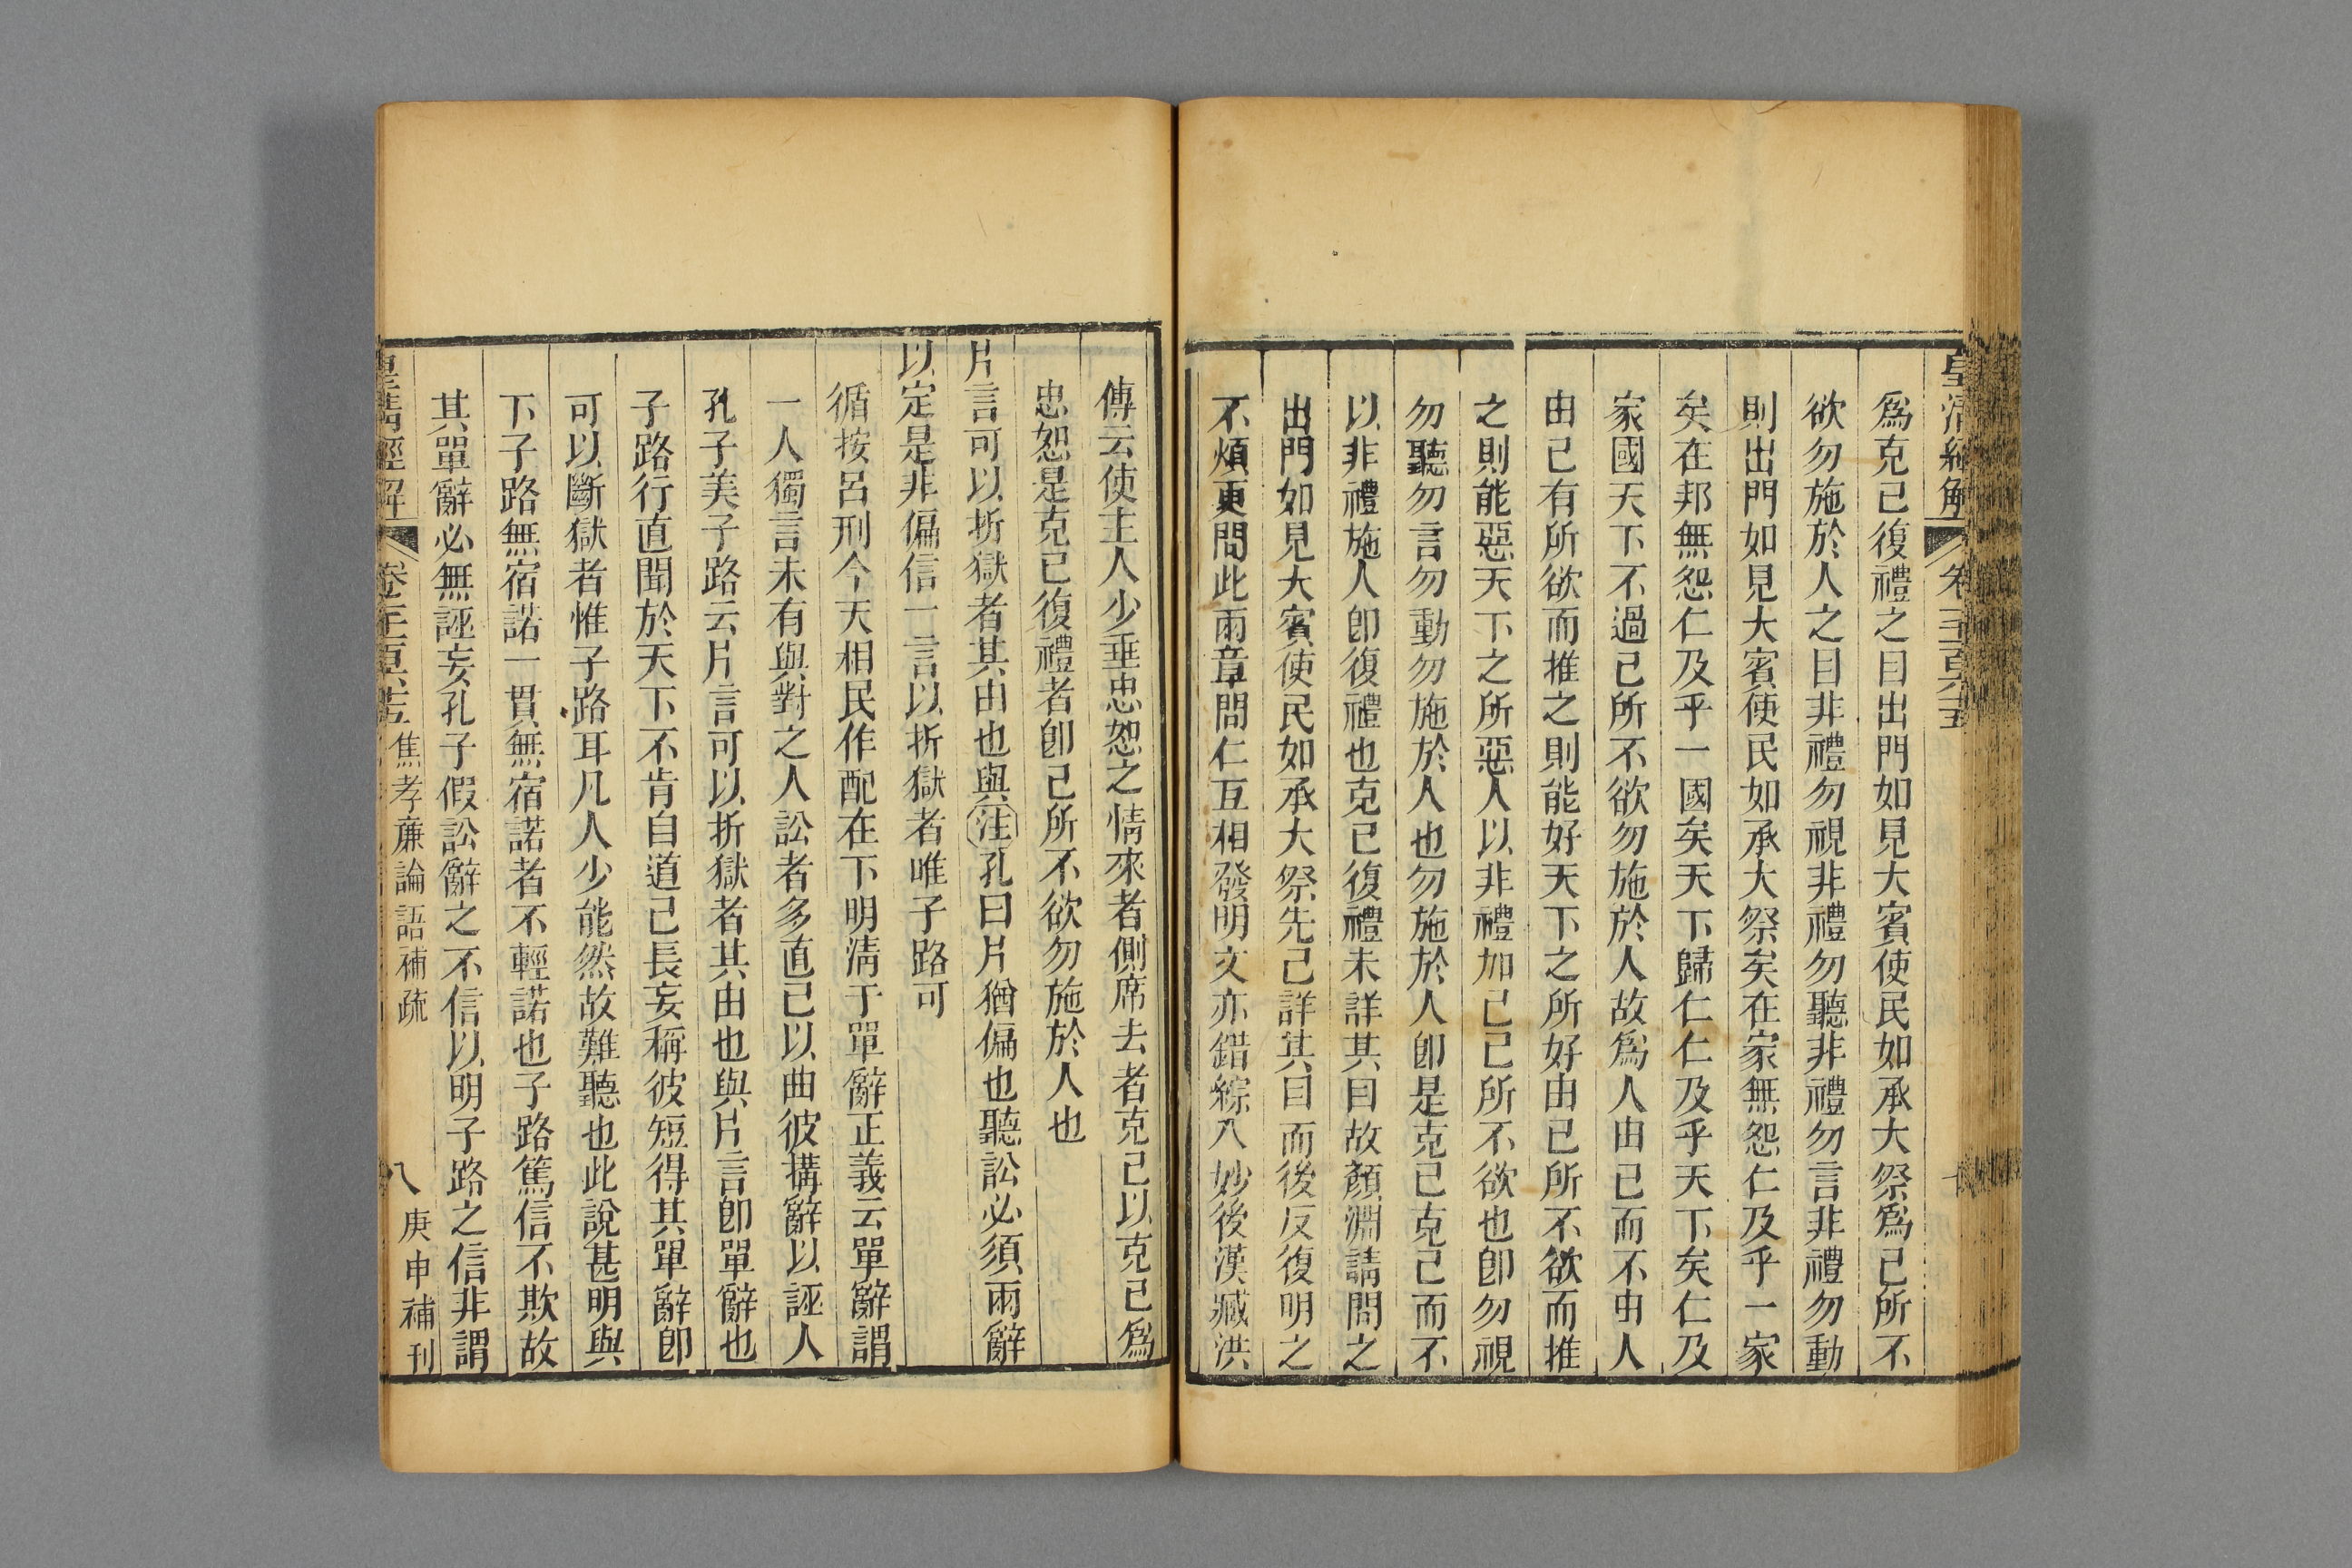 皇清經解 卷千一百六十五
爲克己復禮之目出門如見大賓使民如承大祭爲己所不
欲勿施於人之目非禮勿視非禮勿聽非禮勿言非禮勿動
則出門如見大賓使民如承大祭矣在家無怨仁及乎一家
矣在邦無怨仁及乎一國矣天下歸仁仁及乎天下矣仁及
家國天下不過己所不欲勿施於人故爲人由己而不由人
由己有所欲而推之則能好天下之所好由己所不欲而推
之則能惡天下之所惡人以非禮加己己所不欲也卽勿視
勿聽勿言勿動勿施於人也勿施於人卽是克己克己而不
以非禮施人卽復禮也克己復禮未詳其目故顏淵請問之
出門如見大賓使民如承大祭先己詳其目而後反復明之
不煩更問此兩章問仁互相發明文亦錯綜入妙後漢臧洪
傳云使主人少垂忠恕之情來者側席去者克己以克己爲
忠恕是克己復禮者卽己所不欲勿施於人也
片言可以折獄者其由也與注孔曰片猶偏也聽訟必須兩辭
以定是非偏信一言以折獄者唯子路可
循按呂刑今天相民作配在下明清于單辭正義云單辭謂
一人獨言未有與對之人訟者多直己以曲彼搆辭以誣人
孔子美子路云片言可以折獄者其由也與片言卽單辭也
子路行直聞於天下不肯自道己長妄稱彼短得其單辭卽
可以斷獄者惟子路耳凡人少能然故難聽也此說甚明與
下子路無宿諾一貫無宿諾者不輕諾也子路篤信不欺故
其單辭必無誣妄孔子假訟辭之不信以明子路之信非謂
皇清經解 卷千一百六十五 焦孝廉論語補疏 八 庚申補刊